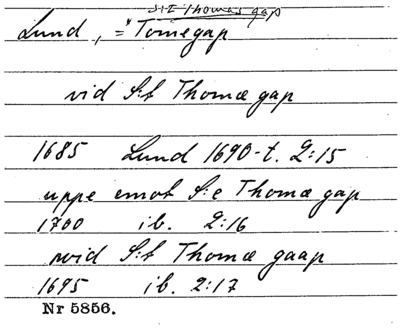 S:t Thomas gap
Lund, = "Tomegap
vid S:t Thomæ gap
1685 Lund 1690-t. 2:15
uppe emot S:e Thomæ gap
1700 ib. 2:16
wid S:t Thomæ gaap
1695 ib. 2:17
Nr 5856.